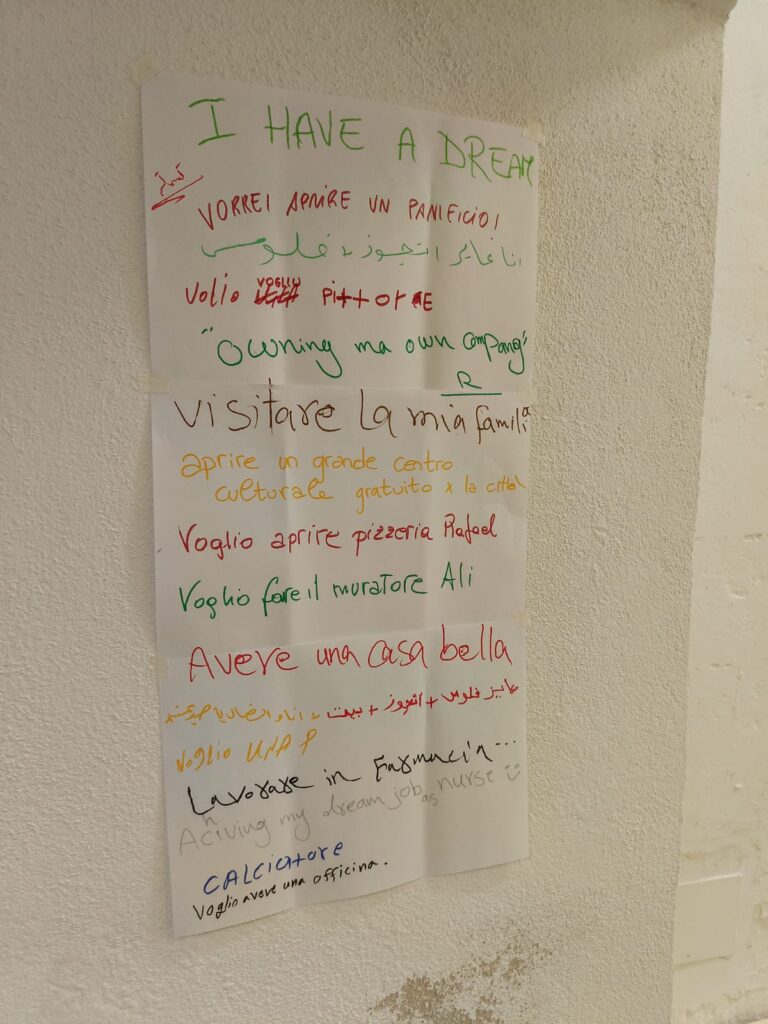 I HAVE A DREAM
VORREI APRIRE UN PANIFICIO!
انا عايز اتجوز + فلوس
Volio VOGLIO PittORE
"Owning ma own company"
R
visitare la mia famiglia
aprire un grande centro
culturale gratuito x la città
Voglio aprire pizzeria Rafael
Voglio fare il muratore Ali
Avere una casa bella
عايز فلوس + اتجوز + بيت
Voglio UNA P
Lavorare in Farmacia...
Achiving my dream job as nurse :)
CALCIATORE
Voglio avere una officina.